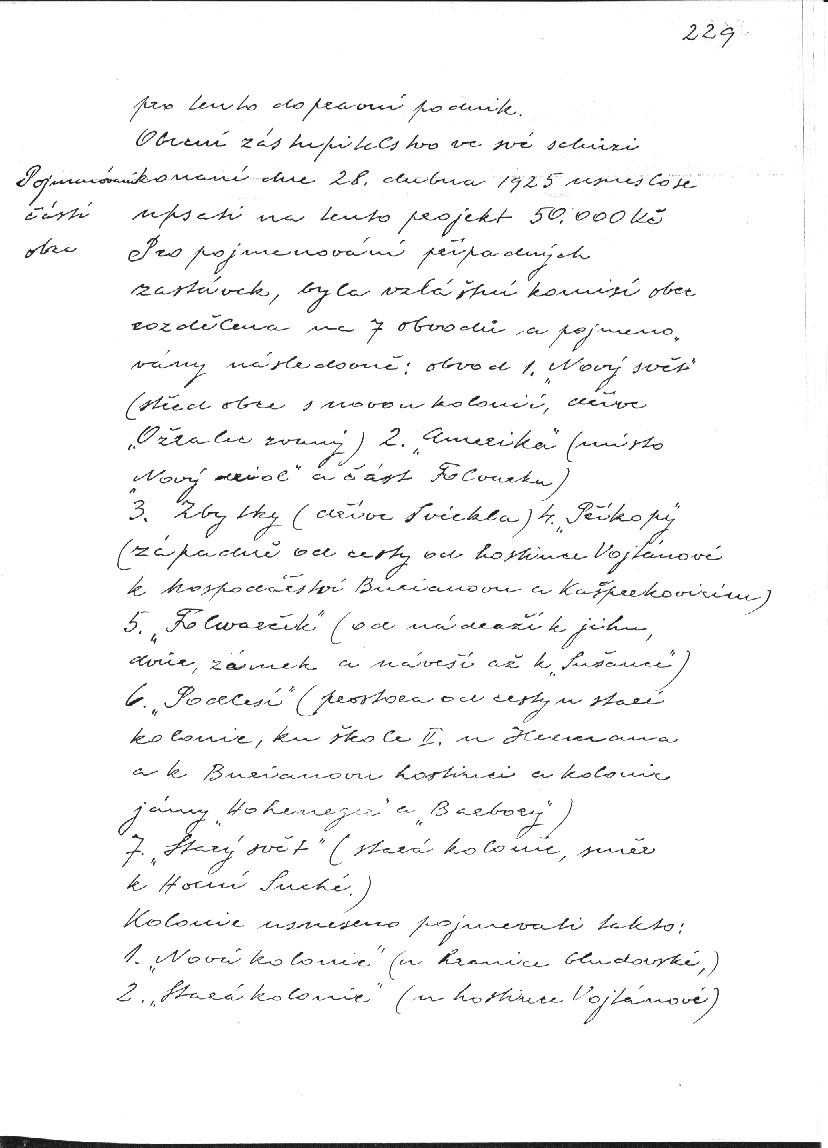 229
pro tento dopravní podnik.
Obecní zastupitelstvo ve své schůzi
Pojmenování konané dne 28. dubna 1925 usneslo se
části upsati na tento projekt 50.000 Kč
obce Pro pojmenování případných
zastávek, byla vzláštní komisí obec
rozdělena na 7 obvodů a pojmeno„
vány následovně: obvod 1. „Nový svět"
(střed obce s novou kolonií, dříve
„Ožralec zvaný) 2. „Amerika" (místo
„Nový důl" a část Folvarku)
3. Zbytky (dříve Svickla) 4. „Příkopy
(západně od cesty od hostince Vojtánové
k hospodářství Burianovu a Kašperkovicím)
5. „Folwarčik" (od nádraží k jihu,
dvůr, zámek a návesí až k „Sušance")
6. „Podlesí" (prostora od cesty u staré
kolonie, ku škole II. u Hermana
a k Burianovu hostinci a kolonie
jámy „Hohenegger" a „Barbory")
7. „Starý svět" (stará kolonie, směr
k Horní Suché.)
Kolonie usneseno pojmevati takto:
1. „Nová kolonie" (u hranice Oludovské,)
2. „Stará kolonie" (u hostince Vojtánové)